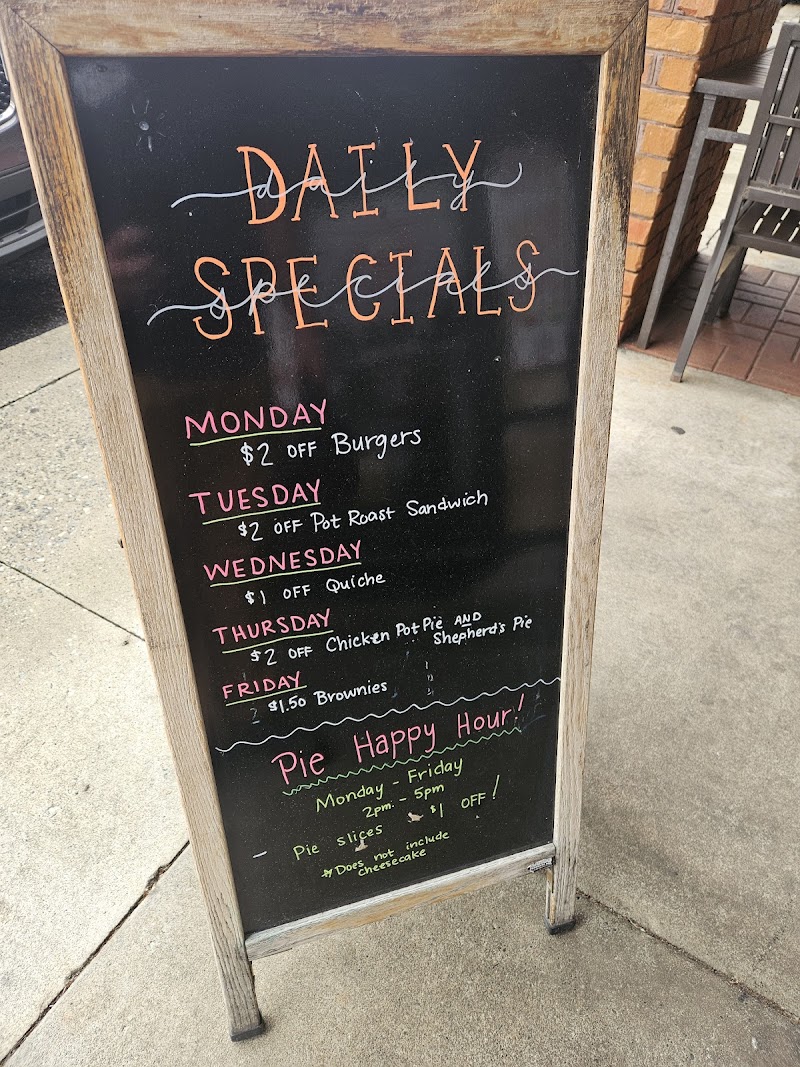 DAILY
daily
SPECIALS
specials
MONDAY
$2 OFF Burgers
TUESDAY
$2 OFF Pot Roast Sandwich
WEDNESDAY
$1 OFF Quiche
THURSDAY
$2 OFF Chicken Pot Pie AND
Shepherd's Pie
FRIDAY
$1.50 Brownies
Pie Happy Hour!
Monday - Friday
2pm. - 5pm
- Pie slices $1 OFF!
* Does not include
cheesecake